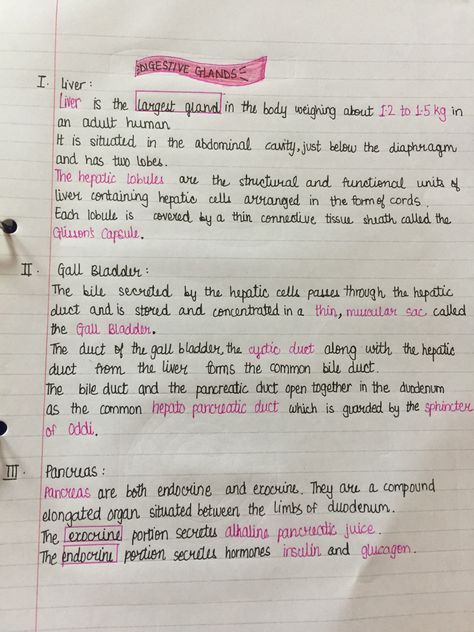 DIGESTIVE GLANDS
I. Liver:
Liver is the largest gland in the body weighing about 1.2 to 1.5 kg in
an adult human
It is situated in the abdominal cavity, just below the diaphragm
and has two lobes.
The hepatic lobules are the structural and functional units of
liver containing hepatic cells arranged in the form of cords.
Each lobule is covered by a thin connective tissue sheath called the
Glisson's Capsule.
II. Gall Bladder:
The bile secreted by the hepatic cells passes through the hepatic
duct and is stored and concentrated in a thin, muscular sac called
the Gall Bladder.
The duct of the gall bladder, the cystic duct along with the hepatic
duct from the liver forms the common bile duct.
The bile duct and the pancreatic duct open together in the duodenum
as the common hepato pancreatic duct which is guarded by the sphincter
of Oddi.
III. Pancreas:
Pancreas are both endocrine and exocrine. They are a compound
elongated organ situated between the limbs of duodenum.
The exocrine portion secretes alkaline pancreatic juice.
The endocrine portion secretes hormones insulin and glucagon.